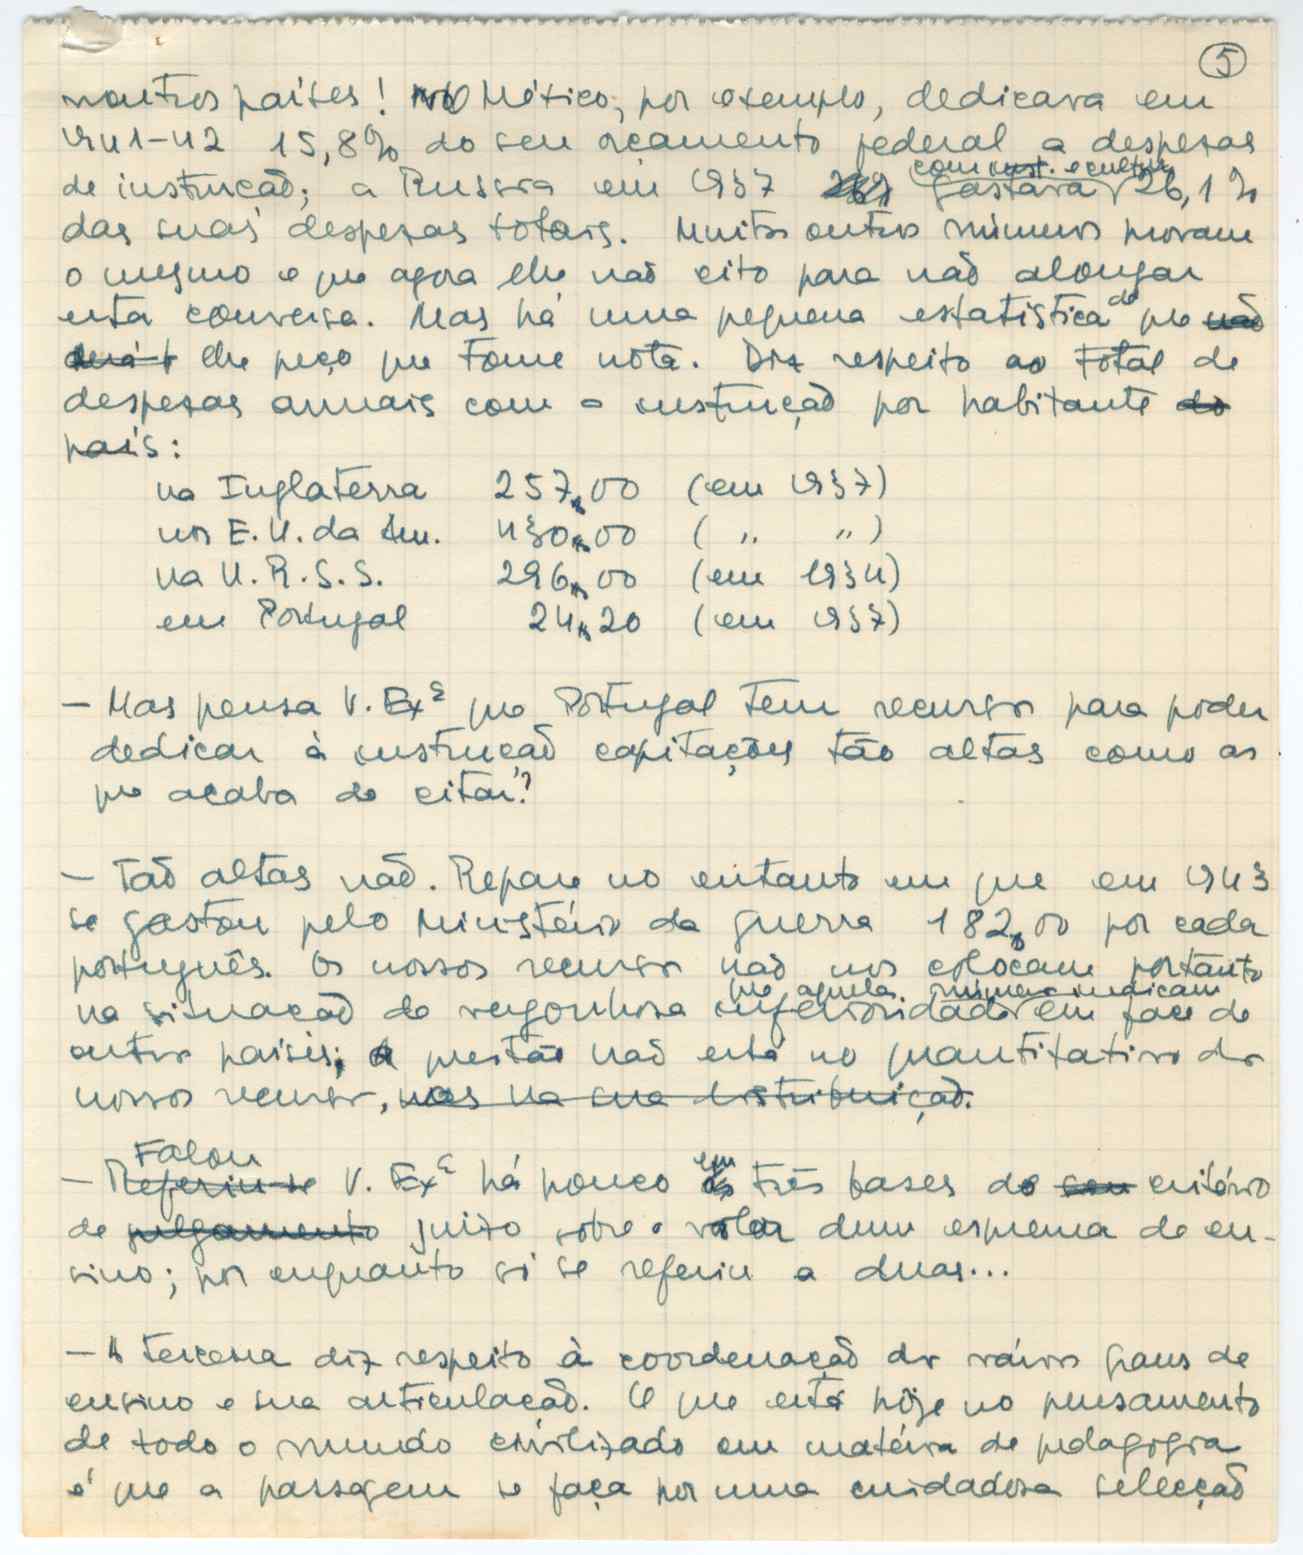 5
noutros países! No México, por exemplo, dedicava em
1941-42 15,8% do seu orçamento federal a despesas
com inst. e cultura
de instrução; a Russia em 1937 gastára 26,1%
das suas despesas totais. Muitos outros números provam
o mesmo e que agora lhe não cito para não alongar
esta conversa. Mas há uma pequena estatística de que não
lhe peço que tome nota. Diz respeito ao total de
despesas anuais com a instrução por habitante do
país:
na Inglaterra 257$00 (em 1937)
nos E.U. da Am. 430$00 ( " " )
na U.R.S.S. 296$00 (em 1934)
em Portugal 24$20 (em 1937)
— Mas pensa V. Exª que Portugal tem recursos para poder
dedicar à instrução capitações tão altas como as
que acaba de citar?
— Tão altas não. Repare no entanto em que em 1943
se gastou pelo Ministério da guerra 182$00 por cada
português. Os nossos recursos não nos colocam portanto
que aqueles números indicam
na situação de vergonhosa inferioridade em face de
outros países; a questão não está no quantitativo dos
nossos recursos, mas na sua distribuição.
Falou em
— Referiu-se V. Exª há pouco às três bases do seu critério
de julgamento juízo sobre o valor dum esquema de en-
sino; por enquanto só se referiu a duas...
— A terceira diz respeito à coordenação dos vários graus de
ensino e sua articulação. O que está hoje no pensamento
de todo o mundo civilizado em matéria de pedagogia
é que a passagem se faça por uma cuidadosa selecção